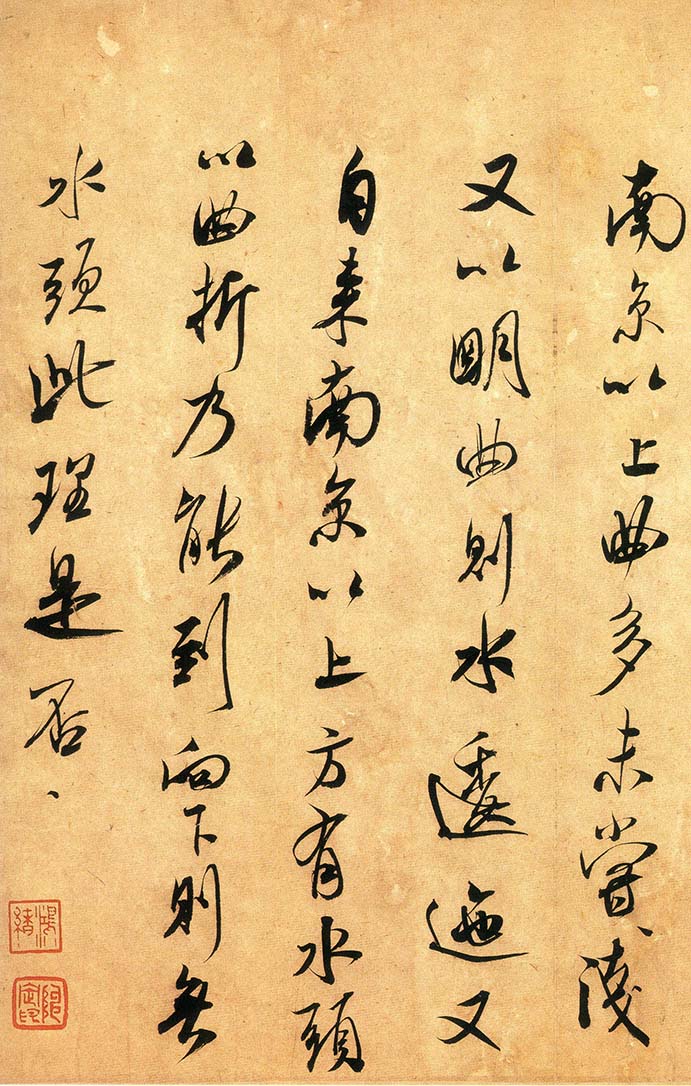 南京以上曲多未嘗、淺
又以明曲則水逶迤又
自来南京以上方有水頭
以曲折乃能到向下則無
水頭此理是否、
鴻緒